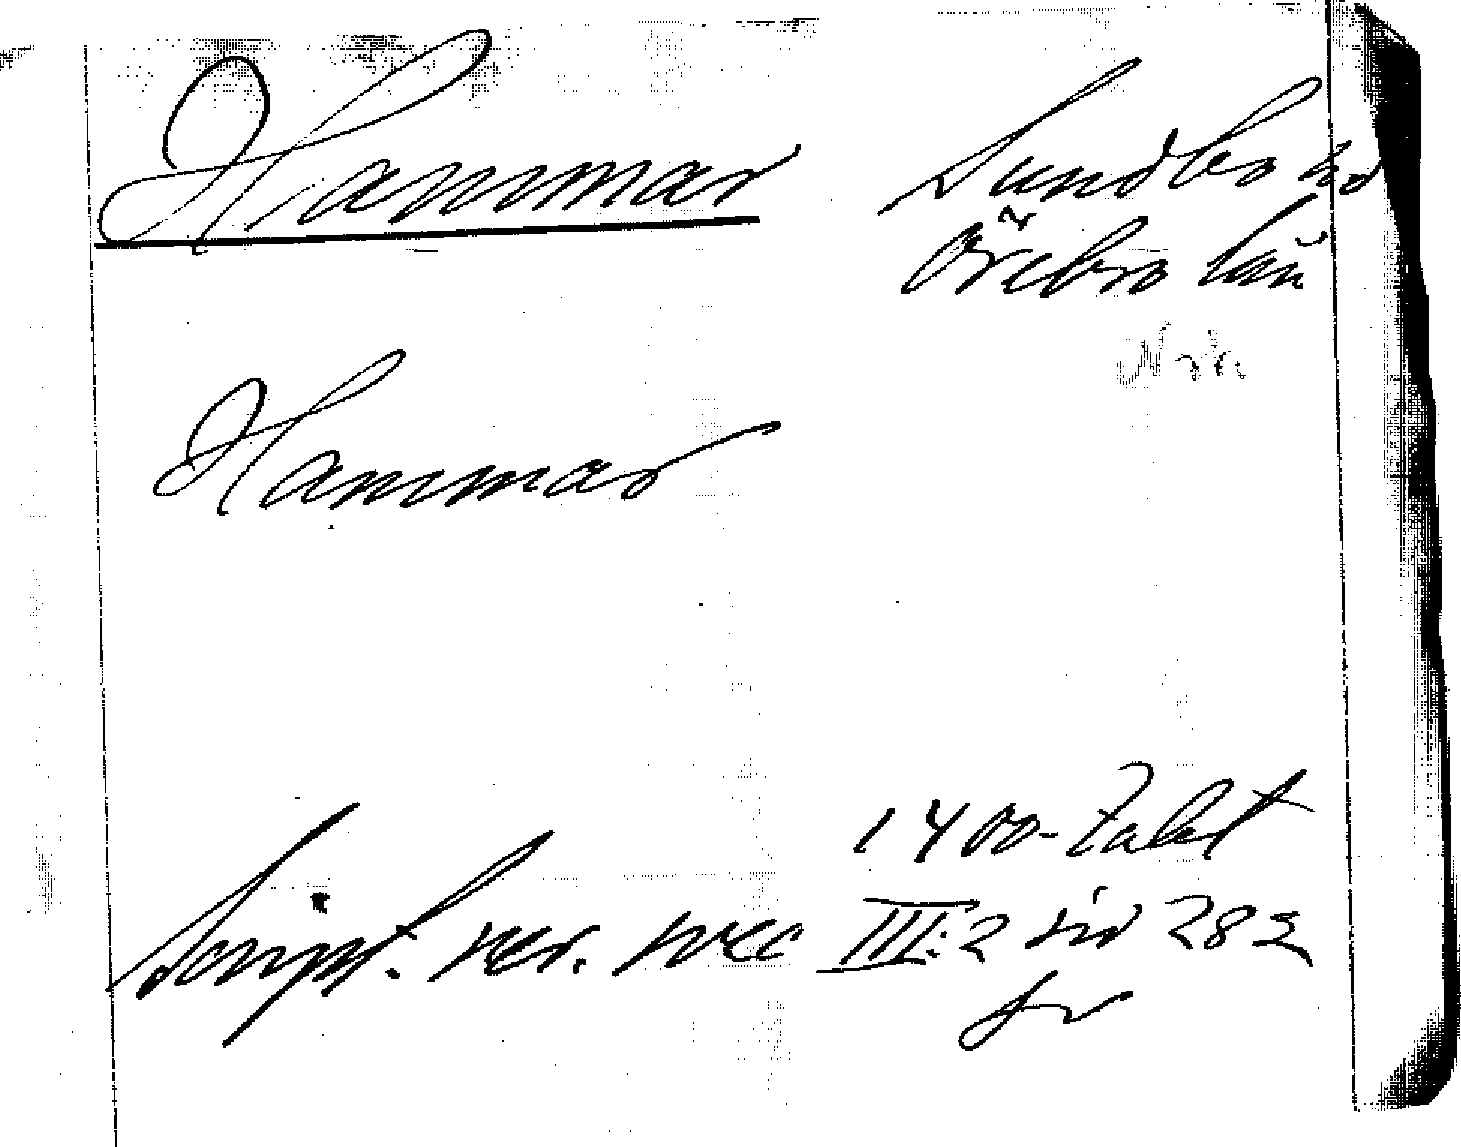 Hammar
Sundbo hd
Örebro län
Hammar
1400-talet
Script. rer. svec III:2 sid 282